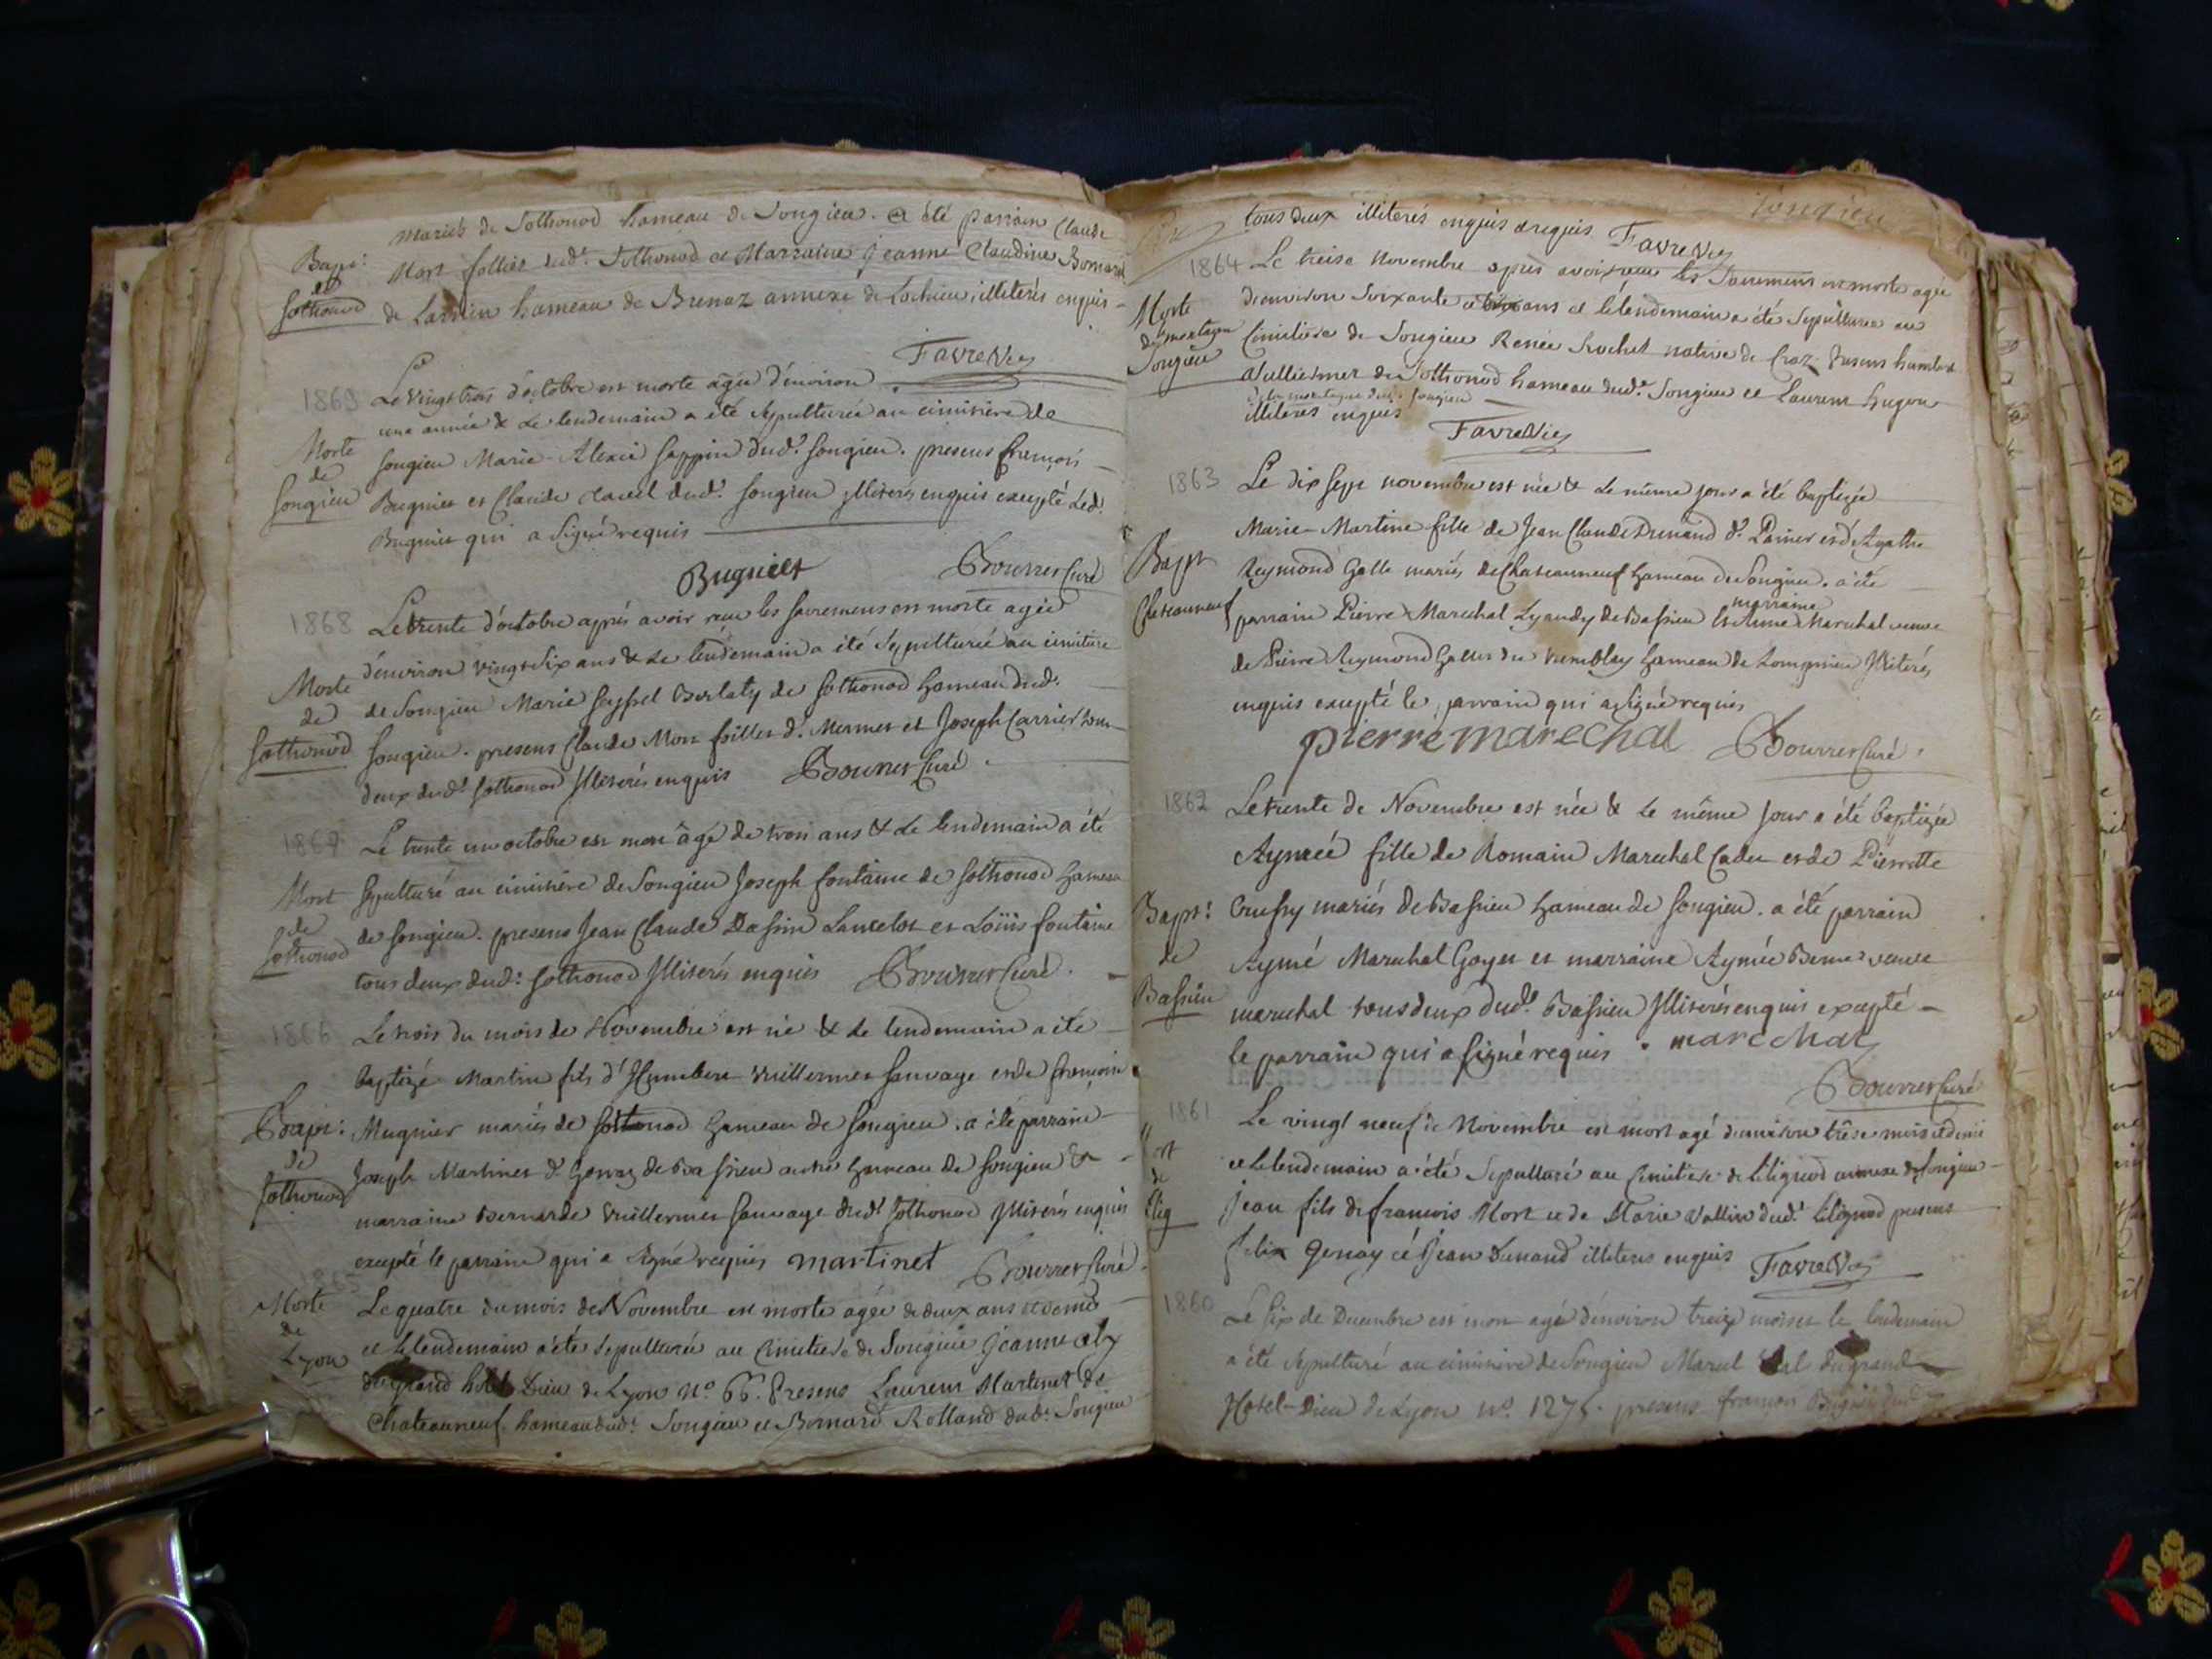 mariés de Sothonod hameau de Songieu. a été parrain Claude
Bapt: Mort follier dud.t Sothonod et Marraine Jeanne Claudine Bornard
de
Sothonod de hameau de Brenaz annexe de Lochieu, illiterés enquis
Favre Vic
1869 Le vingt trois d'octobre est morte agée d'environ
une année & le lendemain a été sepulturée au cimitiere de
Morte Songieu Marie Alexis Sappin dud.t Songieu. presens François
de
Songieu Bugnier et Claude Clavel dud.t Songieu illiterés enquis excepté led.
Bugnier qui a signé requis
Bugniet Bourrer Curé
1868 Le trente d'octobre aprés avoir reçu les sacremens est morte agée
d'environ vingt six ans & le lendemain a été sepulturée au cimitiere
Morte
de de Songieu Marie Seyssel Berlaty de Sothonod hameau dud.
Sothonod Songieu. presens Claude Mort foillet d.t Mermet et Joseph Carrier tous
deux dud.t Sothonod illiterés enquis Bourrer Curé.
1867 Le trente un octobre est mort âgé de trois ans & le lendemain a été
Mort sepulturé au cimitiere de Songieu Joseph fontaine de Sothonod hameau
de
Sothonod de Songieu. presens Jean Claude Dassin Lancelot et Loüis fontaine
tous deux dud.t Sothonod illiterés enquis Bourrer Curé.
1866 Le trois du mois de Novembre est né & le lendemain a été
baptizé Martin fils d'Humbert Vuillermet Sauvage et de françoise
Bapt: Mugnier mariés de Sothonod hameau de Songieu. a été parrain
de
Sothonod Joseph Martinet d.t de Bassieu autre hameau de Songieu &
marraine Bernarde Vuillermet Sauvage dud.t Sothonod illiterés enquis
excepté le parrain qui a signé requis martinet Bourrer Curé.
1865
Morte Le quatre du mois de Novembre est morte agée de deux ans et demi
de
Lyon et le lendemain a été sepulturée au Cimitiere de Songieu Jeanne
du grand hôtel Dieu de Lyon N.o 66. Presens Laurent Martinet de
Chateauneuf hameau dud.t Songieu et Bornard Rolland dud.t Songieu
Songieu
tous deux illiterés enquis et requis. Favre Vic
1864 Le treise Novembre après avoir reçu les Sacremens est morte agée
Morte d'environ soixante et dix ans et le lendemain a été Sepulturée au
de montagne
Songieu Cimitiere de Songieu Renée Rochet native de Craz. Presens humbert
Vulliermet de Sothonod hameau dud.t Songieu et Laurent hugon
de la montagne dud.t Songieu
illiterés enquis
Favre Vic
1863 Le dix sept novembre est née & le même jour a été baptizée
Marie-Martine fille de Jean Claude Drenand d.t Painer et d'Agathe
Bapt
Chateauneuf Reymond Galle mariés de Chateauneuf hameau de Songieu. a été
parrain Pierre Marechal Lyandy de Bassieu & marraine Anne Marechal veuve
de Pierre Reymond Galle du hameau de Lompnieu illiterés
enquis excepté le parrain qui a signé requis
pierre marechal Bourrer Curé.
1862 Le trente de Novembre est née & le même jour a été baptizée
Aymée fille de Romain Marechal Cadet et de Pierrette
Bapt: mariés de Bassieu hameau de Songieu. a été parrain
de Aymé Marechal Goyet et marraine Aymée Berne veuve
Bassieu marechal tous deux dud.t Bassieu illiterés enquis excepté
le parrain qui a signé requis. marechal
Bourrer Curé
1861 Le vingt neuf de Novembre est mort agé d'environ trêse mois et demi
ort
de et le lendemain a été Sepulturé au Cimitiere de Lilignod annexe de Songieu
Lilig Jean fils de françois Mort et de Marie Vallin dud.t Lilignod presens
felix Genay et Jean Drenand illiterés enquis Favre Vic
1860 Le six de Decembre est mort agé d'environ treize mois et le lendemain
a été sepulturé au cimitiere de Songieu Marcel du grand
Hotel-Dieu de Lyon n.o 1275. presens françois Bugnier